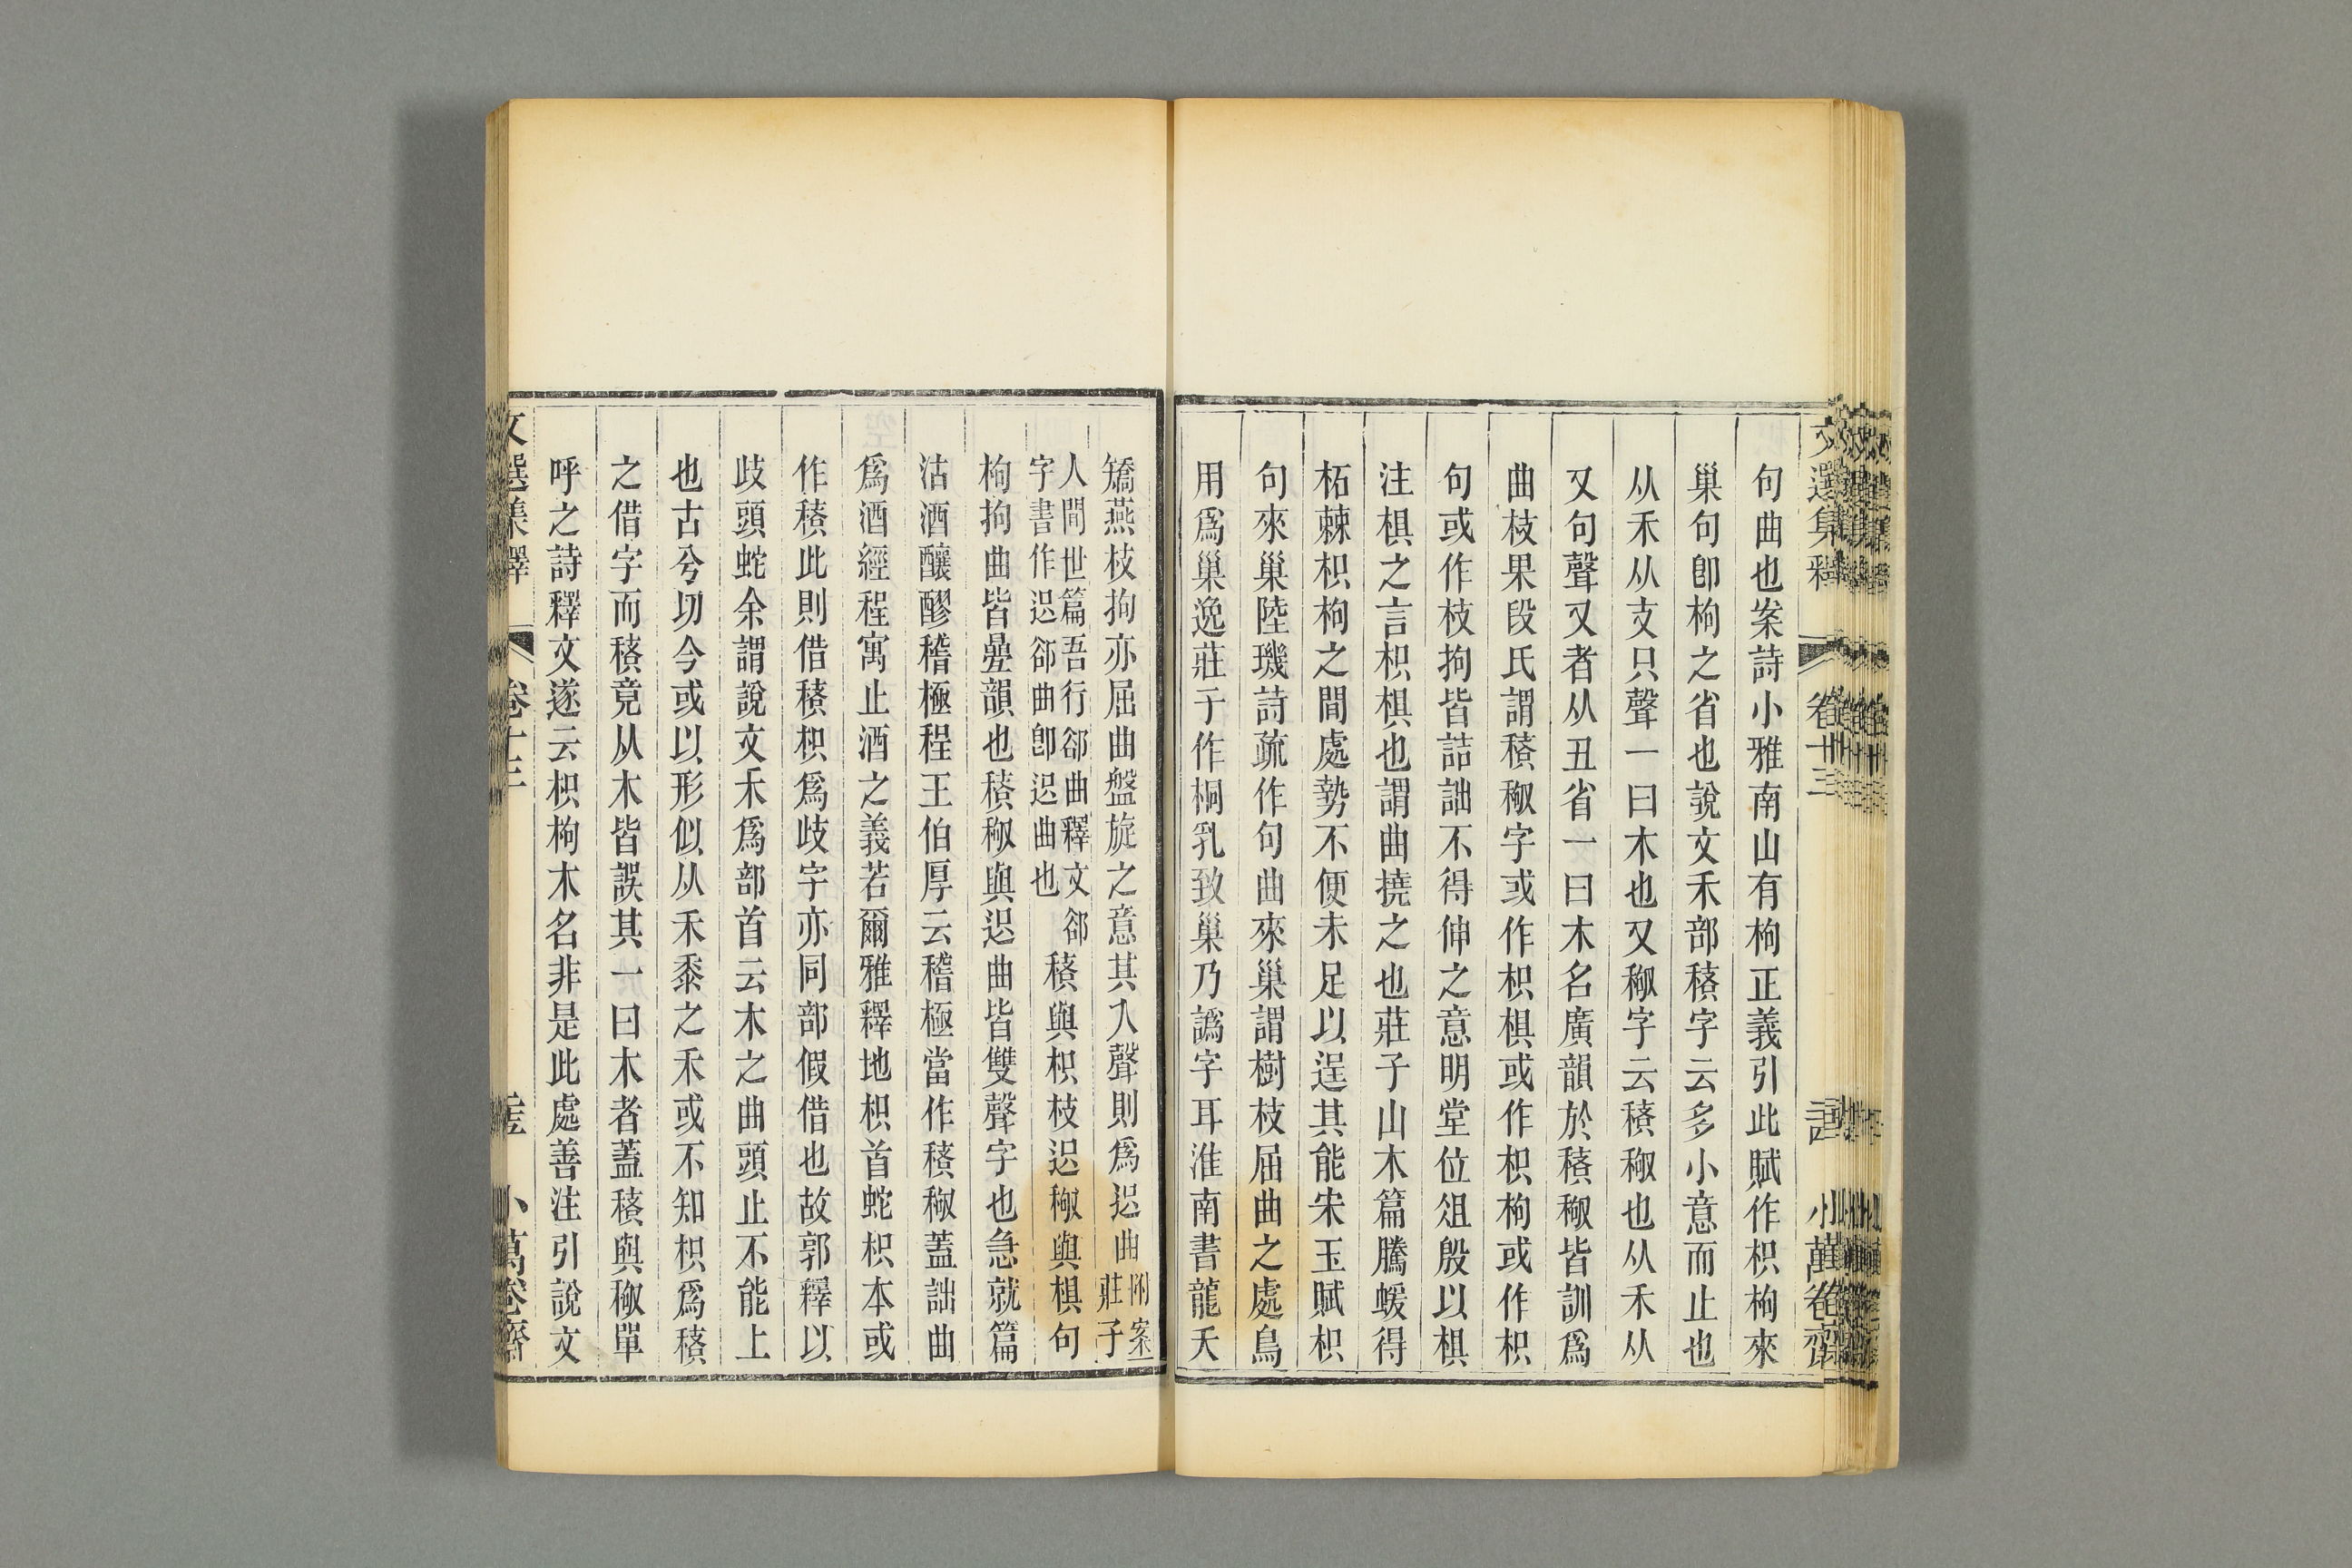 文選集釋 卷十三 小萬卷齋
句曲也案詩小雅南山有枸正義引此賦作枳枸來
巢句卽枸之省也說文禾部𥡴字云多小意而止也
从禾从支只聲一曰木也又𥠻字云𥡴𥠻也从禾从
又句聲又者从丑省一曰木名廣韻於𥡴𥠻皆訓爲
曲枝果段氏謂𥡴𥠻字或作枳椇或作枳枸或作枳
句或作枝拘皆詰詘不得伸之意明堂位俎殷以椇
注椇之言枳椇也謂曲撓之也莊子山木篇騰蝯得
柘棘枳枸之間處勢不便未足以逞其能宋玉賦枳
句來巢陸璣詩疏作句曲來巢謂樹枝屈曲之處鳥
用爲巢逸莊子作桐乳致巢乃譌字耳淮南書龍夭
矯燕枝拘亦屈曲盤旋之意其入聲則爲迟曲附案莊子
人間世篇吾行郤曲釋文郤
字書作迟郤曲卽迟曲也
𥡴與枳枝迟𥠻與椇句
枸拘曲皆曡韻也𥡴𥠻與迟曲皆雙聲字也急就篇
沽酒釀醪稽極程王伯厚云稽極當作𥡴𥠻蓋詘曲
爲酒經程寓止酒之義若爾雅釋地枳首蛇枳本或
作𥡴此則借𥡴枳爲歧字亦同部假借也故郭釋以
歧頭蛇余謂說文禾爲部首云木之曲頭止不能上
也古兮切今或以形似从禾黍之禾或不知枳爲𥡴
之借字而𥡴竟从木皆誤其一曰木者蓋𥡴與𥠻單
呼之詩釋文遂云枳枸木名非是此處善注引說文
文選集釋 卷十三 小萬卷齋